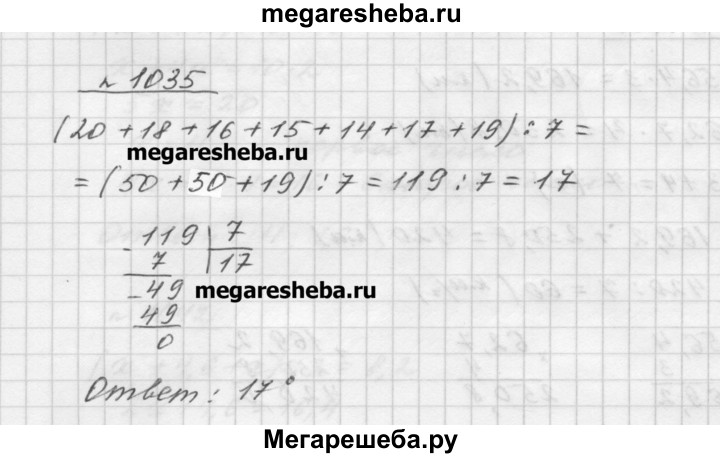 megaresheba.ru
№ 1035
(20 + 18 + 16 + 15 + 14 + 17 + 19) : 7 =
megaresheba.ru
= (50 + 50 + 19) : 7 = 119 : 7 = 17
- 119 | 7
7 | 17
- 49
megaresheba.ru
49
0
Ответ: 17°
Мегарешеба.ру